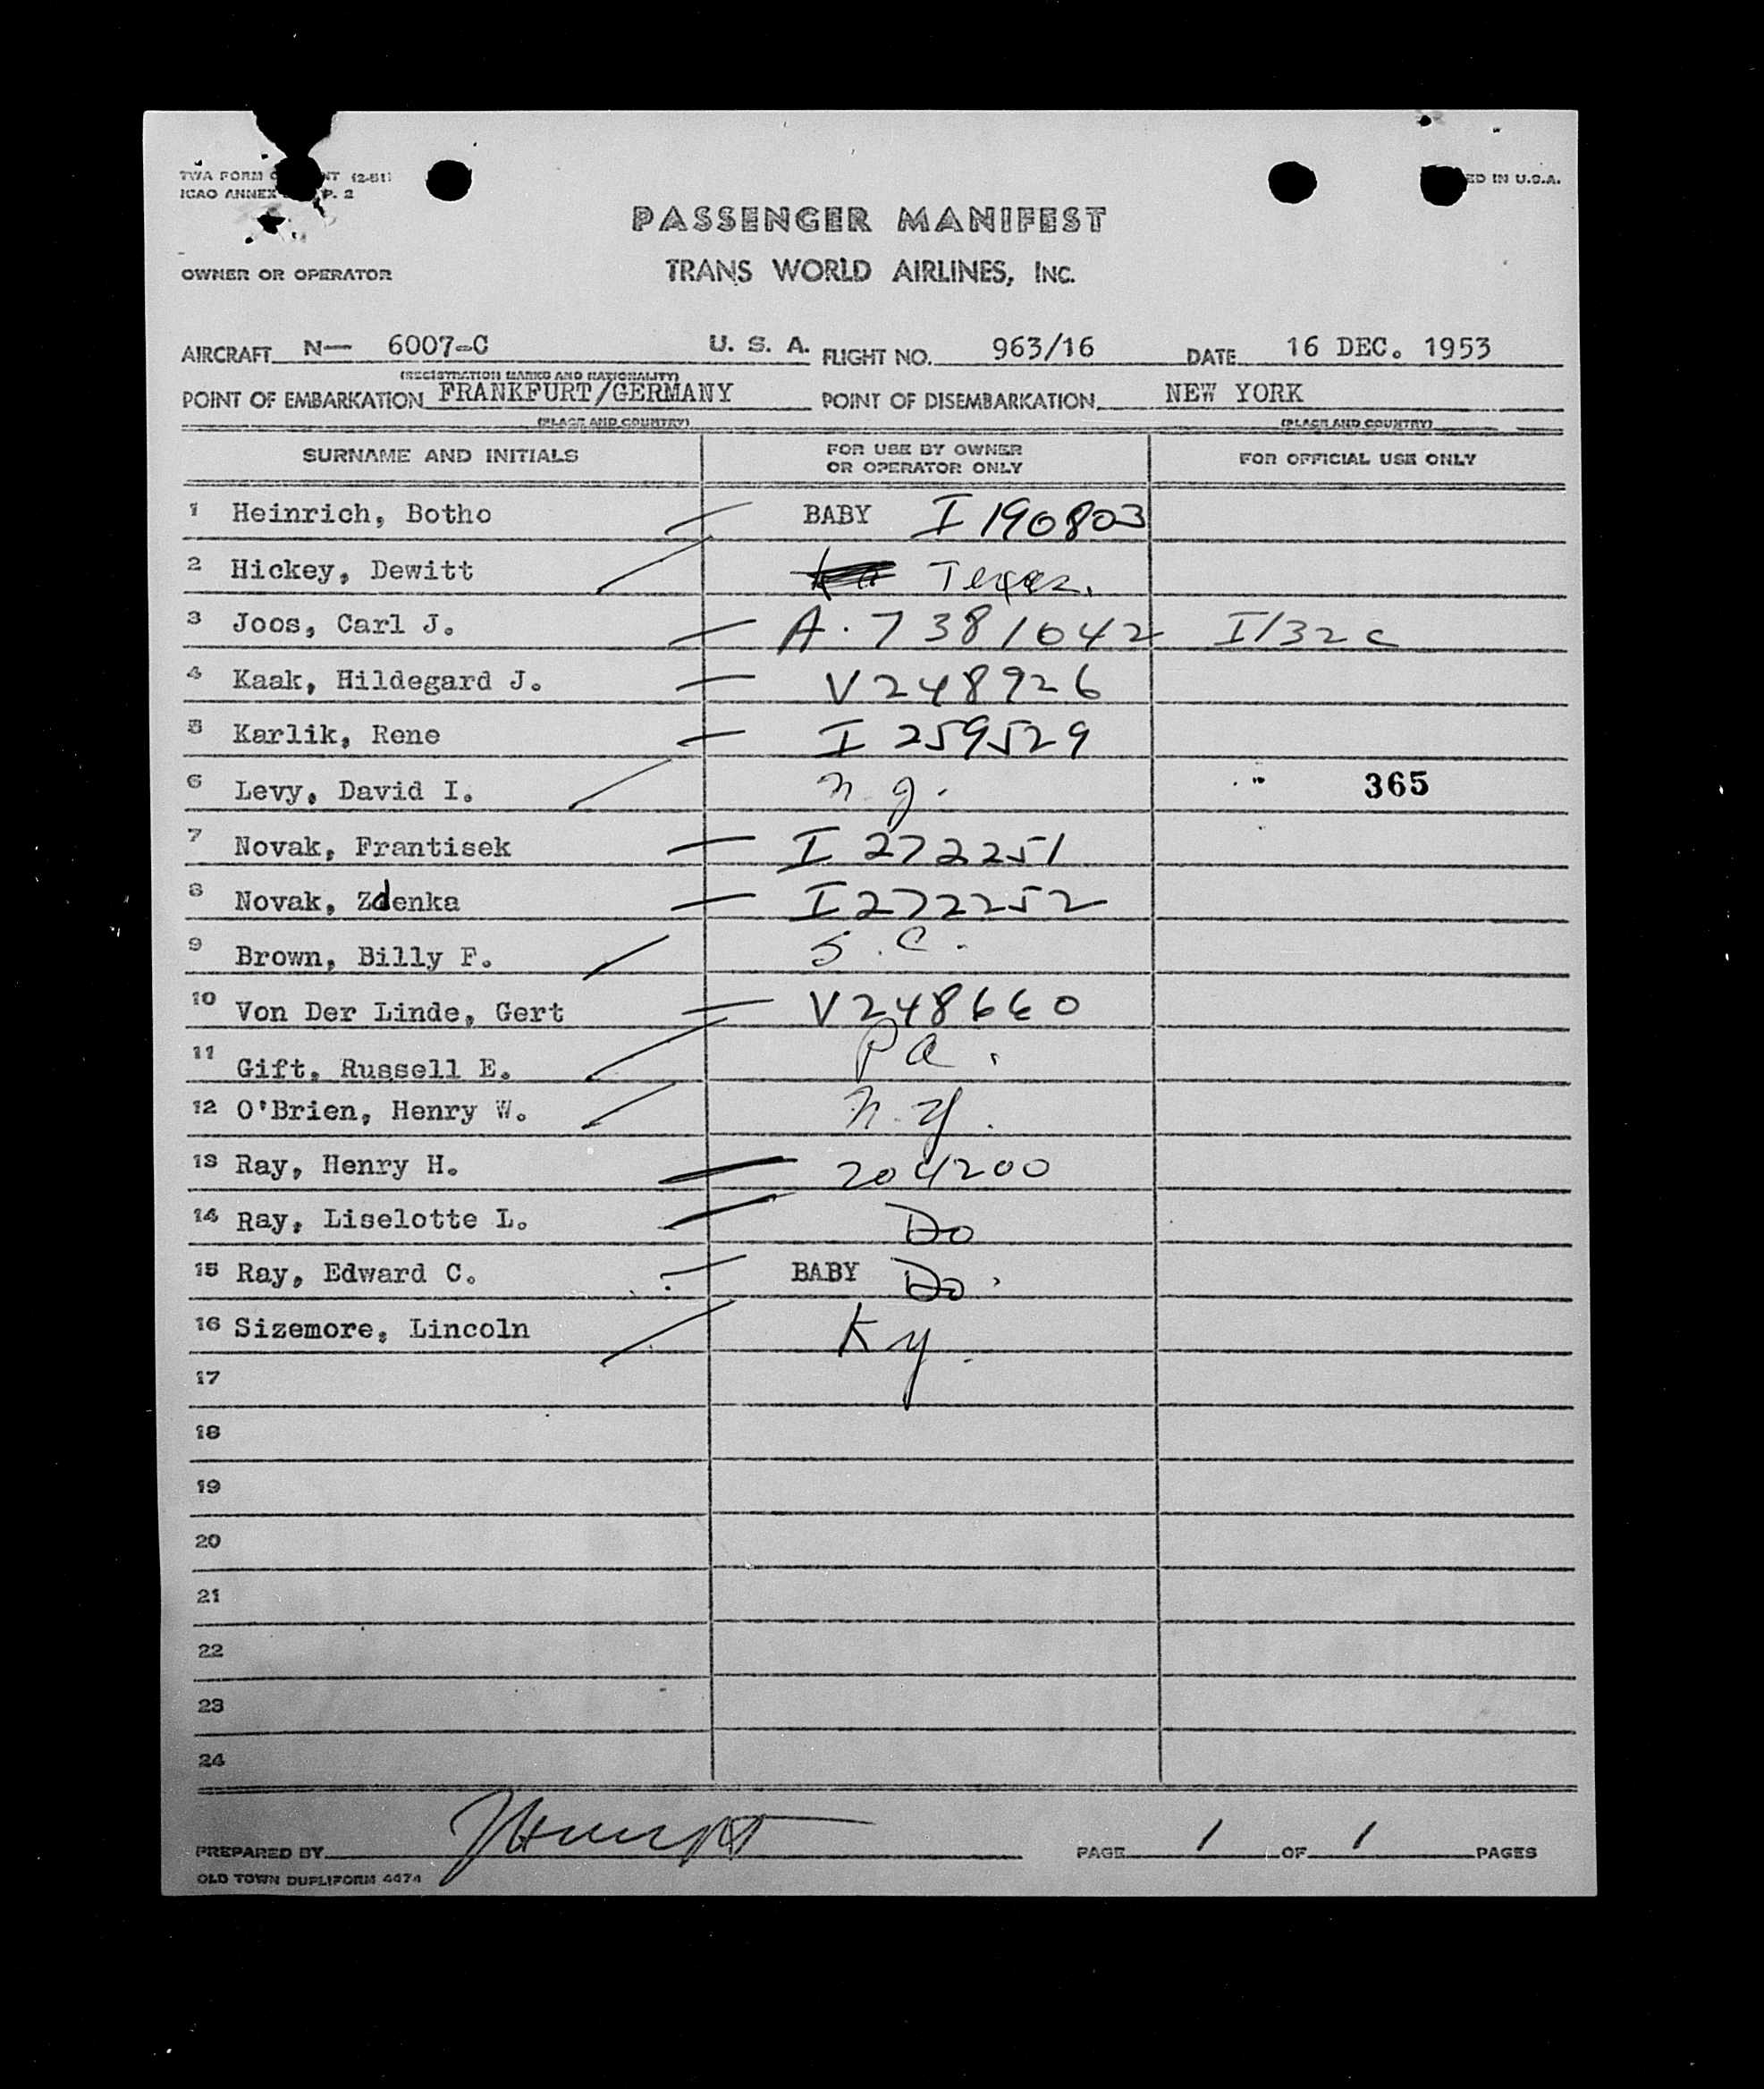 TWA FORM
ICAO ANNEX P. 2
PASSENGER MANIFEST
OWNER OR OPERATOR TRANS WORLD AIRLINES, INC.
AIRCRAFT N— 6007-C U. S. A. FLIGHT NO. 963/16 DATE 16 DEC. 1953
(REGISTRATION MARKS AND NATIONALITY)
POINT OF EMBARKATION FRANKFURT/GERMANY POINT OF DISEMBARKATION NEW YORK
(PLACE AND COUNTRY) (PLACE AND COUNTRY)
SURNAME AND INITIALS FOR USE BY OWNER OR OPERATOR ONLY FOR OFFICIAL USE ONLY
1 Heinrich, Botho BABY I 190803
2 Hickey, Dewitt Texas.
3 Joos, Carl J. A. 7381642 I/32c
4 Kaak, Hildegard J. V248926
5 Karlik, Rene I 259529
6 Levy, David I. n.J. 365
7 Novak, Frantisek I 272251
8 Novak, Zdenka I272252
9 Brown, Billy F. S.C.
10 Von Der Linde, Gert V248660
11 Gift, Russell E. Pa.
12 O'Brien, Henry W. n.y.
13 Ray, Henry H. 204200
14 Ray, Liselotte L. Do
15 Ray, Edward C. BABY Do.
16 Sizemore, Lincoln Ky.
17
18
19
20
21
22
23
24
PREPARED BY PAGE 1 OF 1 PAGES
OLD TOWN DUPLIFORM 4474